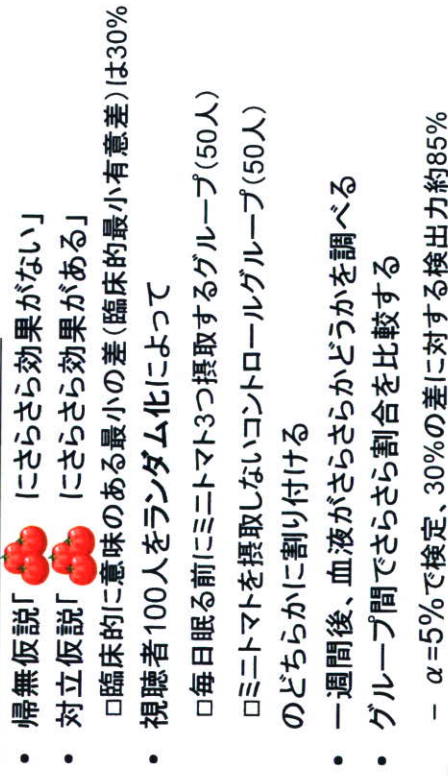 • 帰無仮説「🍅にさらさら効果がない」
• 対立仮説「🍅にさらさら効果がある」
□臨床的に意味のある最小の差(臨床的最小有意差)は30%
• 視聴者100人をランダム化によって
□毎日眠る前にミニトマト3つ摂取するグループ(50人)
□ミニトマトを摂取しないコントロールグループ(50人)
のどちらかに割り付ける
• 一週間後、血液がさらさらかどうかを調べる
• グループ間でさらさら割合を比較する
– α=5%で検定、30%の差に対する検出力約85%